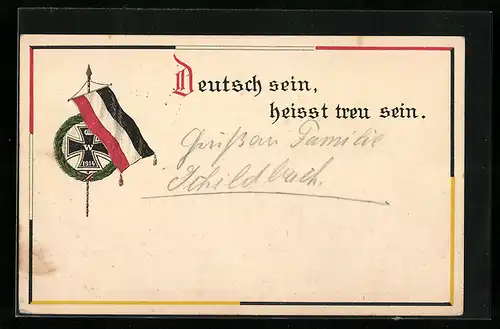 Deutsch sein,
heisst treu sein.
Gruß an Familie
Schildbach.
W
1914